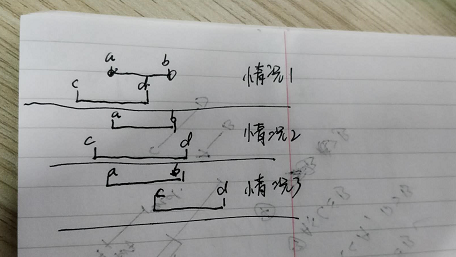 a b
c d 情况1
a b
c d 情况2
a b
c d 情况3